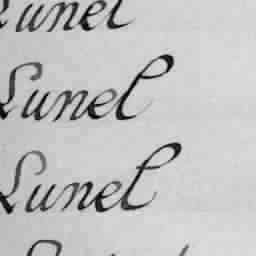 Lunel
Lunel
Lunel